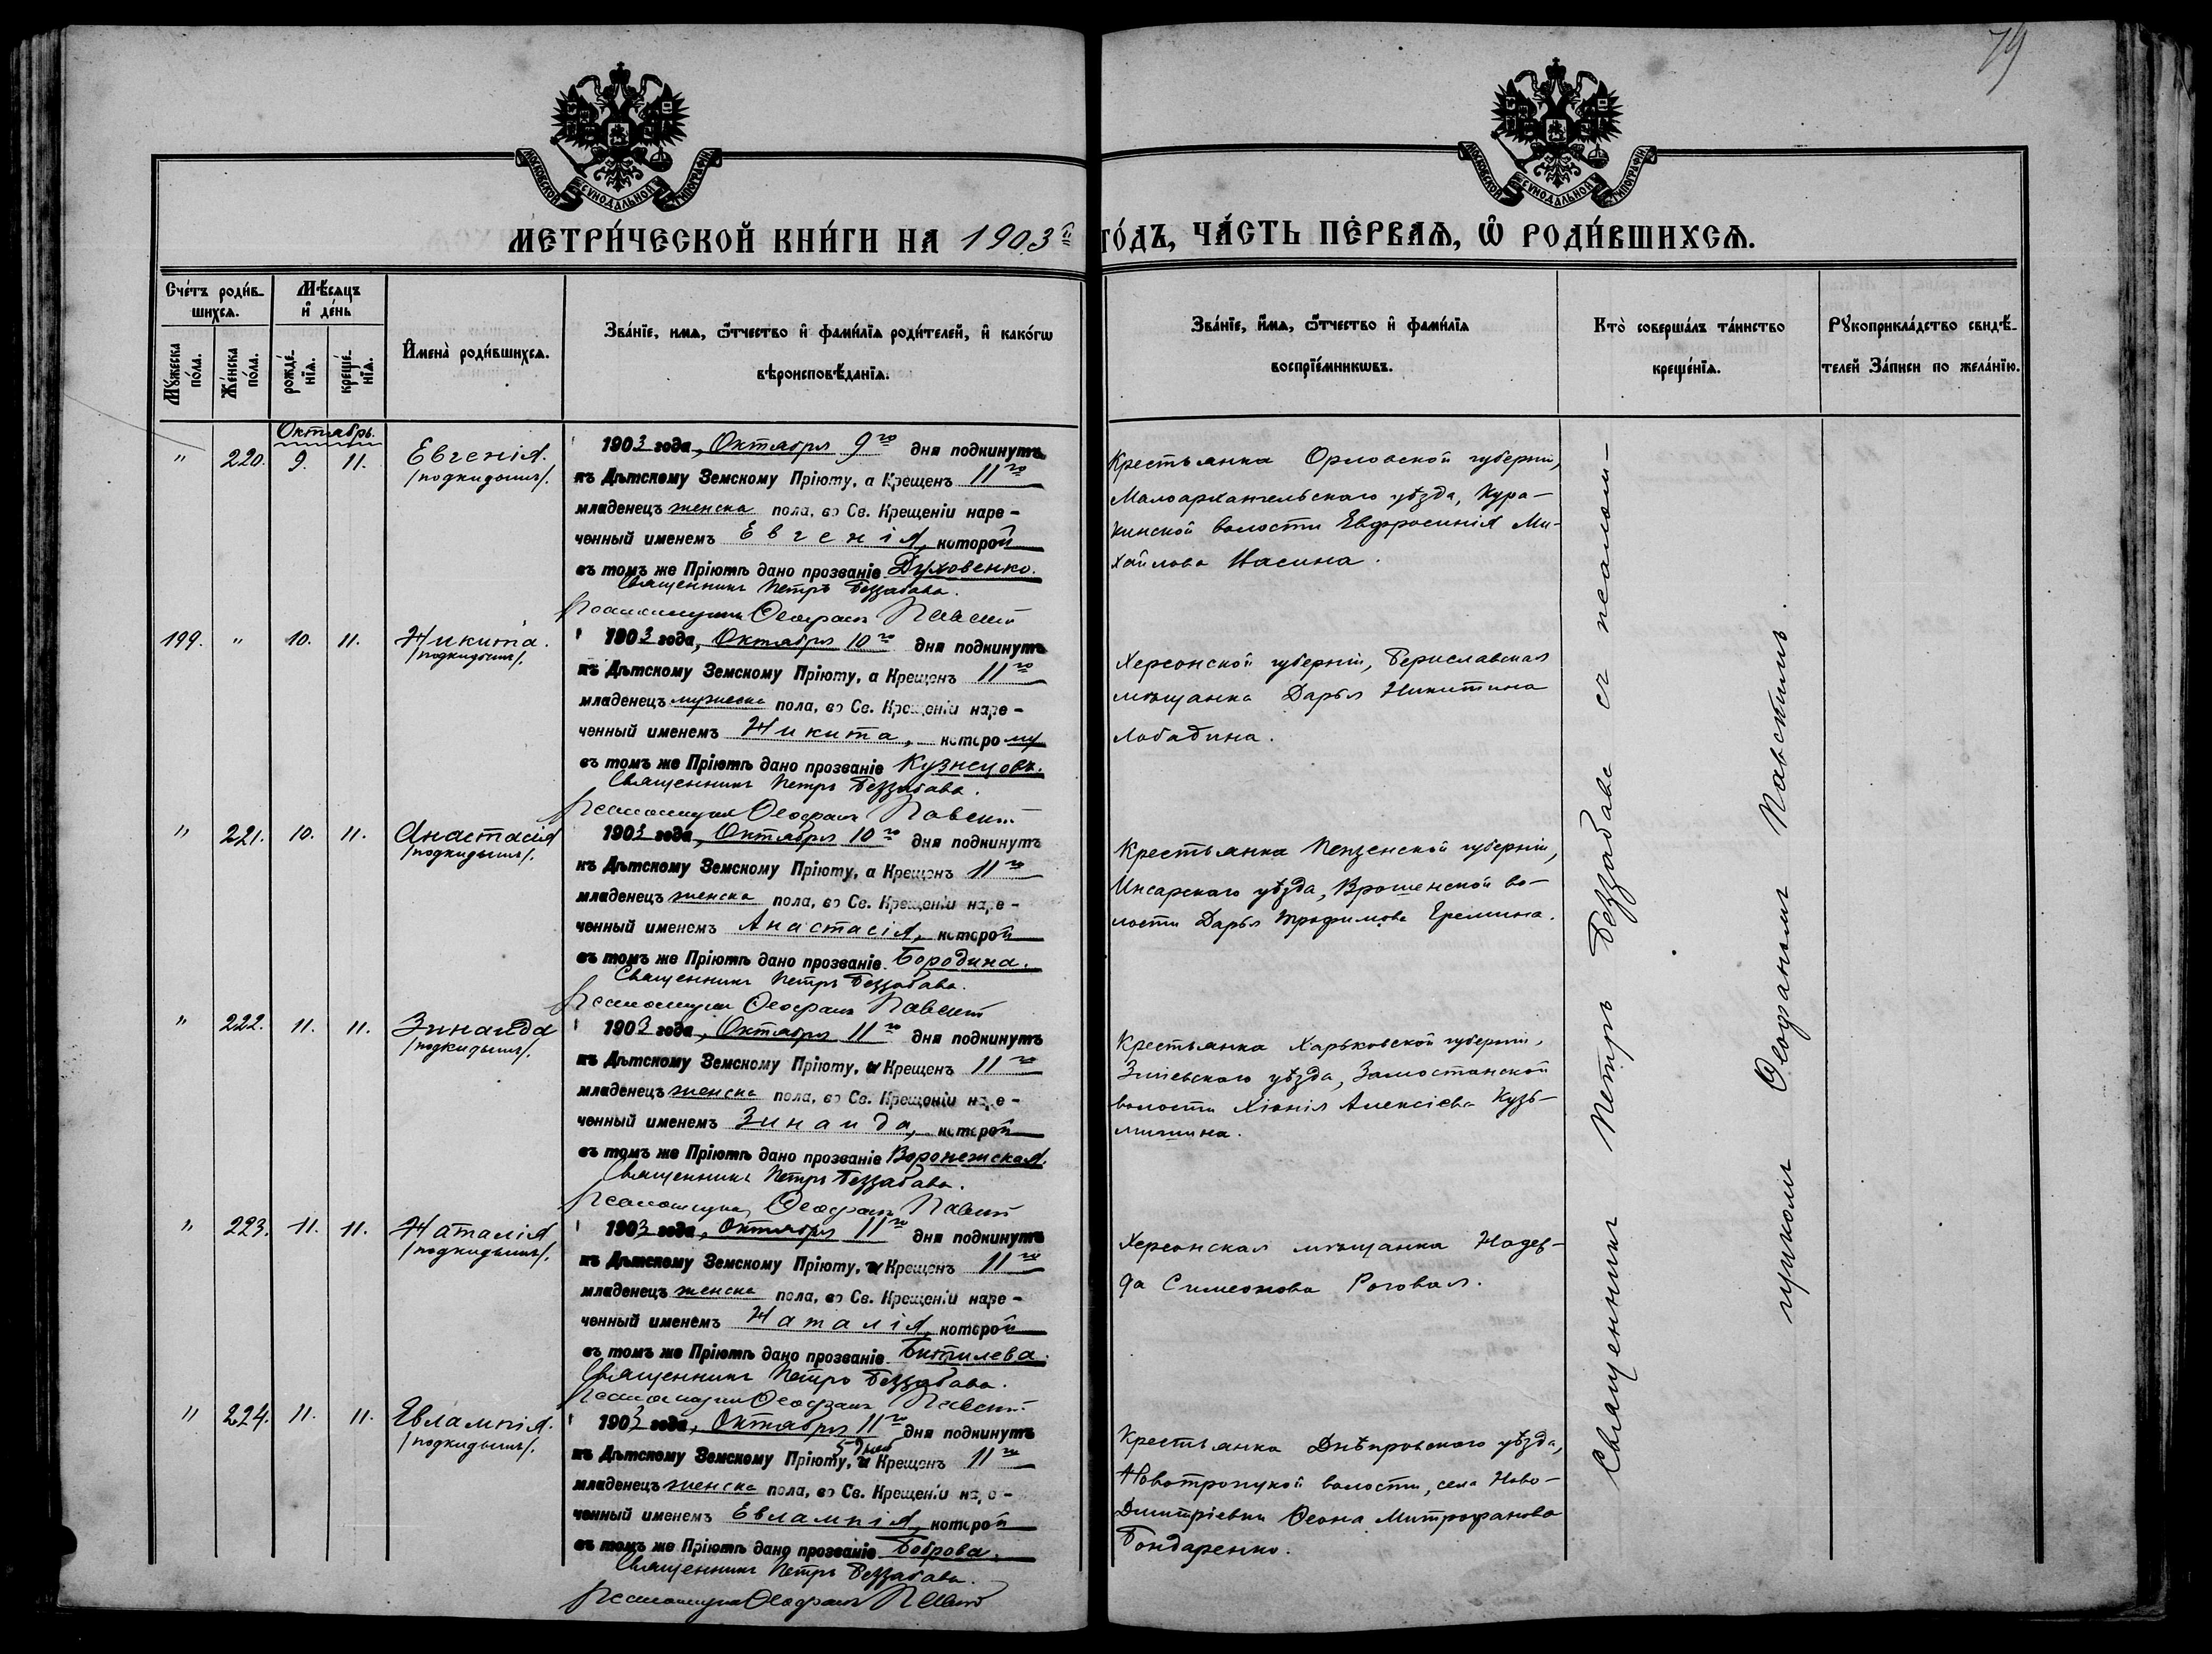 79
МОСКОВСКОЙ СѴНОДАЛЬНОЙ ТИПОГРАФІИ
МОСКОВСКОЙ СѴНОДАЛЬНОЙ ТИПОГРАФІИ
МЕТРИ́ЧЕСКОЙ КНИ́ГИ НА 1903й
ГО́ДЪ, ЧА́СТЬ ПЕ́РВАѦ, Ѡ҆ РОДИ́ВШИХСѦ.
Сче́тъ роди́в-
шихсѧ.
Мꙋ́жеска по́ла.
Же́нска по́ла.
Мѣ́сѧцъ
и҆ де́нь
рожде́-
нїѧ.
креще́-
нїѧ.
И҆мена̀ роди́вшихсѧ.
Зва́нїе, имѧ, ѿ́чество и҆ фами́лїѧ роди́телей, и҆ како́гѡ
вѣроисповѣ́данїѧ.
Зва́нїе, и҆́мѧ, ѿ́чество и҆ фами́лїѧ
воспрїе́мникѡвъ.
Кто̀ соверша́лъ та́инство
креще́нїѧ.
Рꙋкоприкла́дство свидѣ́-
телей За́писи по жела́нїю.
Октябрь.
" 220. 9. 11. Евгенія.
/подкидышъ/.
1903 года, Октября 9го дня подкинутъ
къ Дѣтскому Земскому Пріюту, а Крещенъ 11го
младенецъ женска пола, во Св. Крещеніи наре-
ченный именемъ Евгенія, которой
въ томъ же Пріютѣ дано прозваніе Духовенко.
Священникъ Петръ Беззабава.
Псаломщикъ Ѳеофанъ Павскій
Крестьянка Орловской губерніи,
Малоархангельскаго уѣзда, Кура-
кинской волости Евфросинія Ми-
хайлова Насина.
199. " 10. 11. Никита.
/подкидышъ/.
1903 года, Октября 10го дня подкинутъ
къ Дѣтскому Земскому Пріюту, а Крещенъ 11го
младенецъ мужеска пола, во Св. Крещеніи наре-
ченный именемъ Никита, которому
въ томъ же Пріютѣ дано прозваніе Кузнецовъ.
Священникъ Петръ Беззабава.
Псаломщикъ Ѳеофанъ Павскій
Херсонской губерніи, Бериславская
мѣщанка Дарья Никитина
Лободина.
" 221. 10. 11. Анастасія
/подкидышъ/.
1903 года, Октября 10го дня подкинутъ
къ Дѣтскому Земскому Пріюту, а Крещенъ 11го
младенецъ женска пола, во Св. Крещеніи наре-
ченный именемъ Анастасія, которой
въ томъ же Пріютѣ дано прозваніе Бородина.
Священникъ Петръ Беззабава.
Псаломщикъ Ѳеофанъ Павскій
Крестьянка Пензенской губерніи,
Инсарскаго уѣзда, во-
лости Дарья Трофимова Еремина.
" 222. 11. 11. Зинаида
/подкидышъ/.
1903 года, Октября 11го дня подкинутъ
къ Дѣтскому Земскому Пріюту, и Крещенъ 11го
младенецъ женска пола, во Св. Крещеніи наре-
ченный именемъ Зинаида, которой
въ томъ же Пріютѣ дано прозваніе Воронежская.
Священникъ Петръ Беззабава.
Псаломщикъ Ѳеофанъ Павскій
Крестьянка Харьковской губерніи,
Зміевскаго уѣзда, Замостянской
волости Хіонія Алексіева Кузь-
мишина.
" 223. 11. 11. Наталія
/подкидышъ/.
1903 года, Октября 11го дня подкинутъ
къ Дѣтскому Земскому Пріюту, и Крещенъ 11го
младенецъ женска пола, во Св. Крещеніи наре-
ченный именемъ Наталія, которой
въ томъ же Пріютѣ дано прозваніе Битилева.
Священникъ Петръ Беззабава.
Псаломщикъ Ѳеофанъ Павскій
Херсонская мѣщанка Надеж-
да Симеонова Роговая.
" 224. 11. 11. Евлампія.
/подкидышъ/.
1903 года, Октября 11го дня подкинутъ
5 дней
къ Дѣтскому Земскому Пріюту, и Крещенъ 11го
младенецъ женска пола, во Св. Крещеніи наре-
ченный именемъ Евлампія, которой
въ томъ же Пріютѣ дано прозваніе Боброва.
Священникъ Петръ Беззабава.
Псаломщикъ Ѳеофанъ Павскій
Крестьянка Днѣпровскаго уѣзда,
Новотроицкой волости, села Ново-
Дмитріевки Ѳеона Митрофанова
Бондаренко.
Священникъ Петръ Беззабава съ псалом-
щикомъ Ѳеофаномъ Павскимъ.